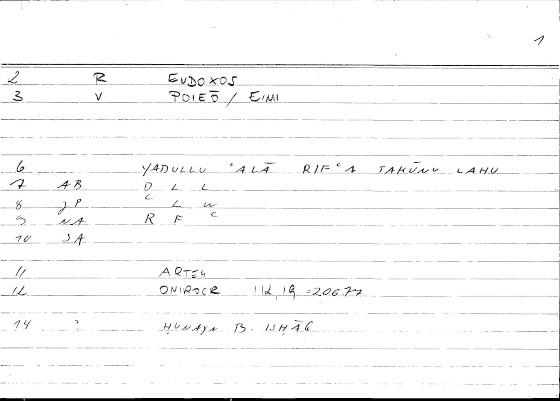 1
2 R EUDOXOS
3 V POIEŌ / EIMI
6 YADULLU ʿALĀ RIFʿA TAKŪNU LAHU
7 AB D L L
8 JP ʿ L W
9 NA R F ʿ
10 SA
11 ARTEM
12 ONIROCR 112,19 = 20677
14 ? ḤUNAYN B. ISḤĀQ